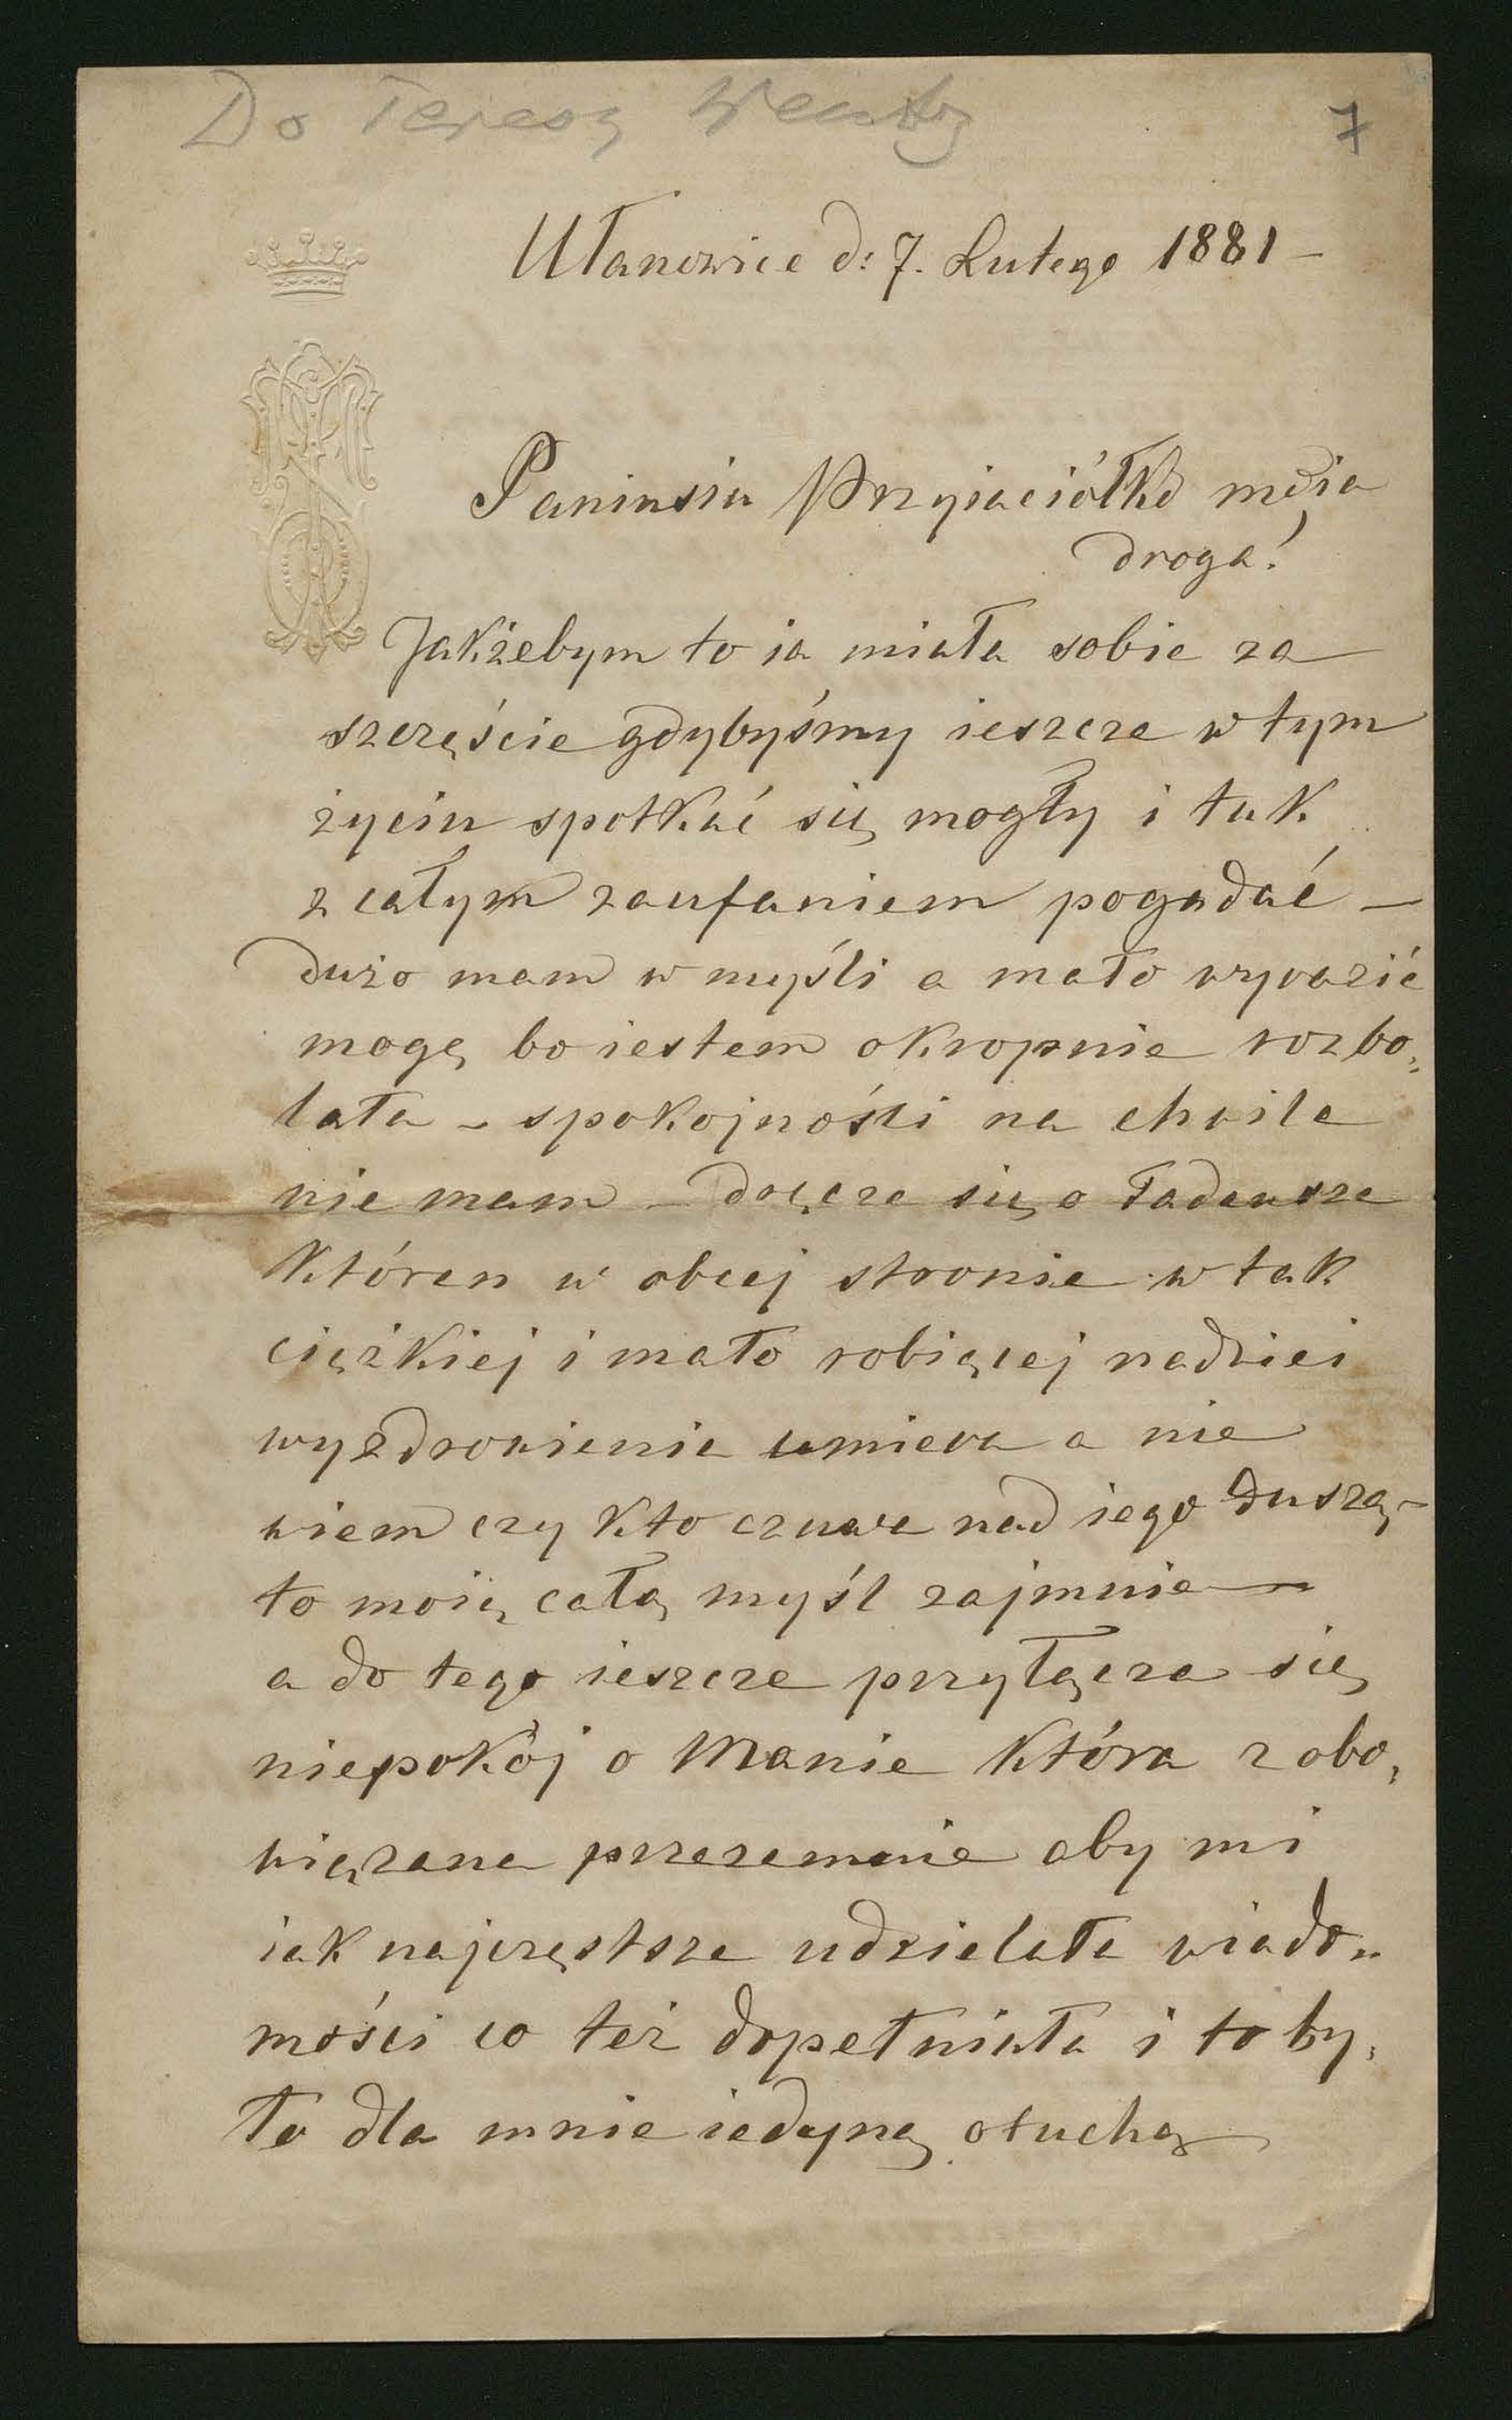 Do Teresy
7
Ułanowice d: 7. Lutego 1881 –
Paniusiu Przyiaciółko moia
droga!
Jakżebym to ia miała sobie za
szczęście gdybyśmy ieszcze w tym
życiu spotkać się mogły i tak
z całym zaufaniem pogadać –
dużo mam w myśli a mało wyrazić
mogę bo iestem okropnie rozbo„
lała – spokojności na chwile
nie mam – dręcze się o Tadeusza
któren w obcej stronie w tak
ciężkiej i mało robiącej nadziei
wyzdrowienia umiera a nie
wiem czy kto czuwa nad iego duszą –
to moią całą myśl zajmuie –
a do tego ieszcze przyłącza się
niepokój o Manie która zobo„
wiązana przezemnie aby mi
iak najczęstsze udzielała wiado„
mości co też dopełniała i to by„
ło dla mnie iedyną otuchą